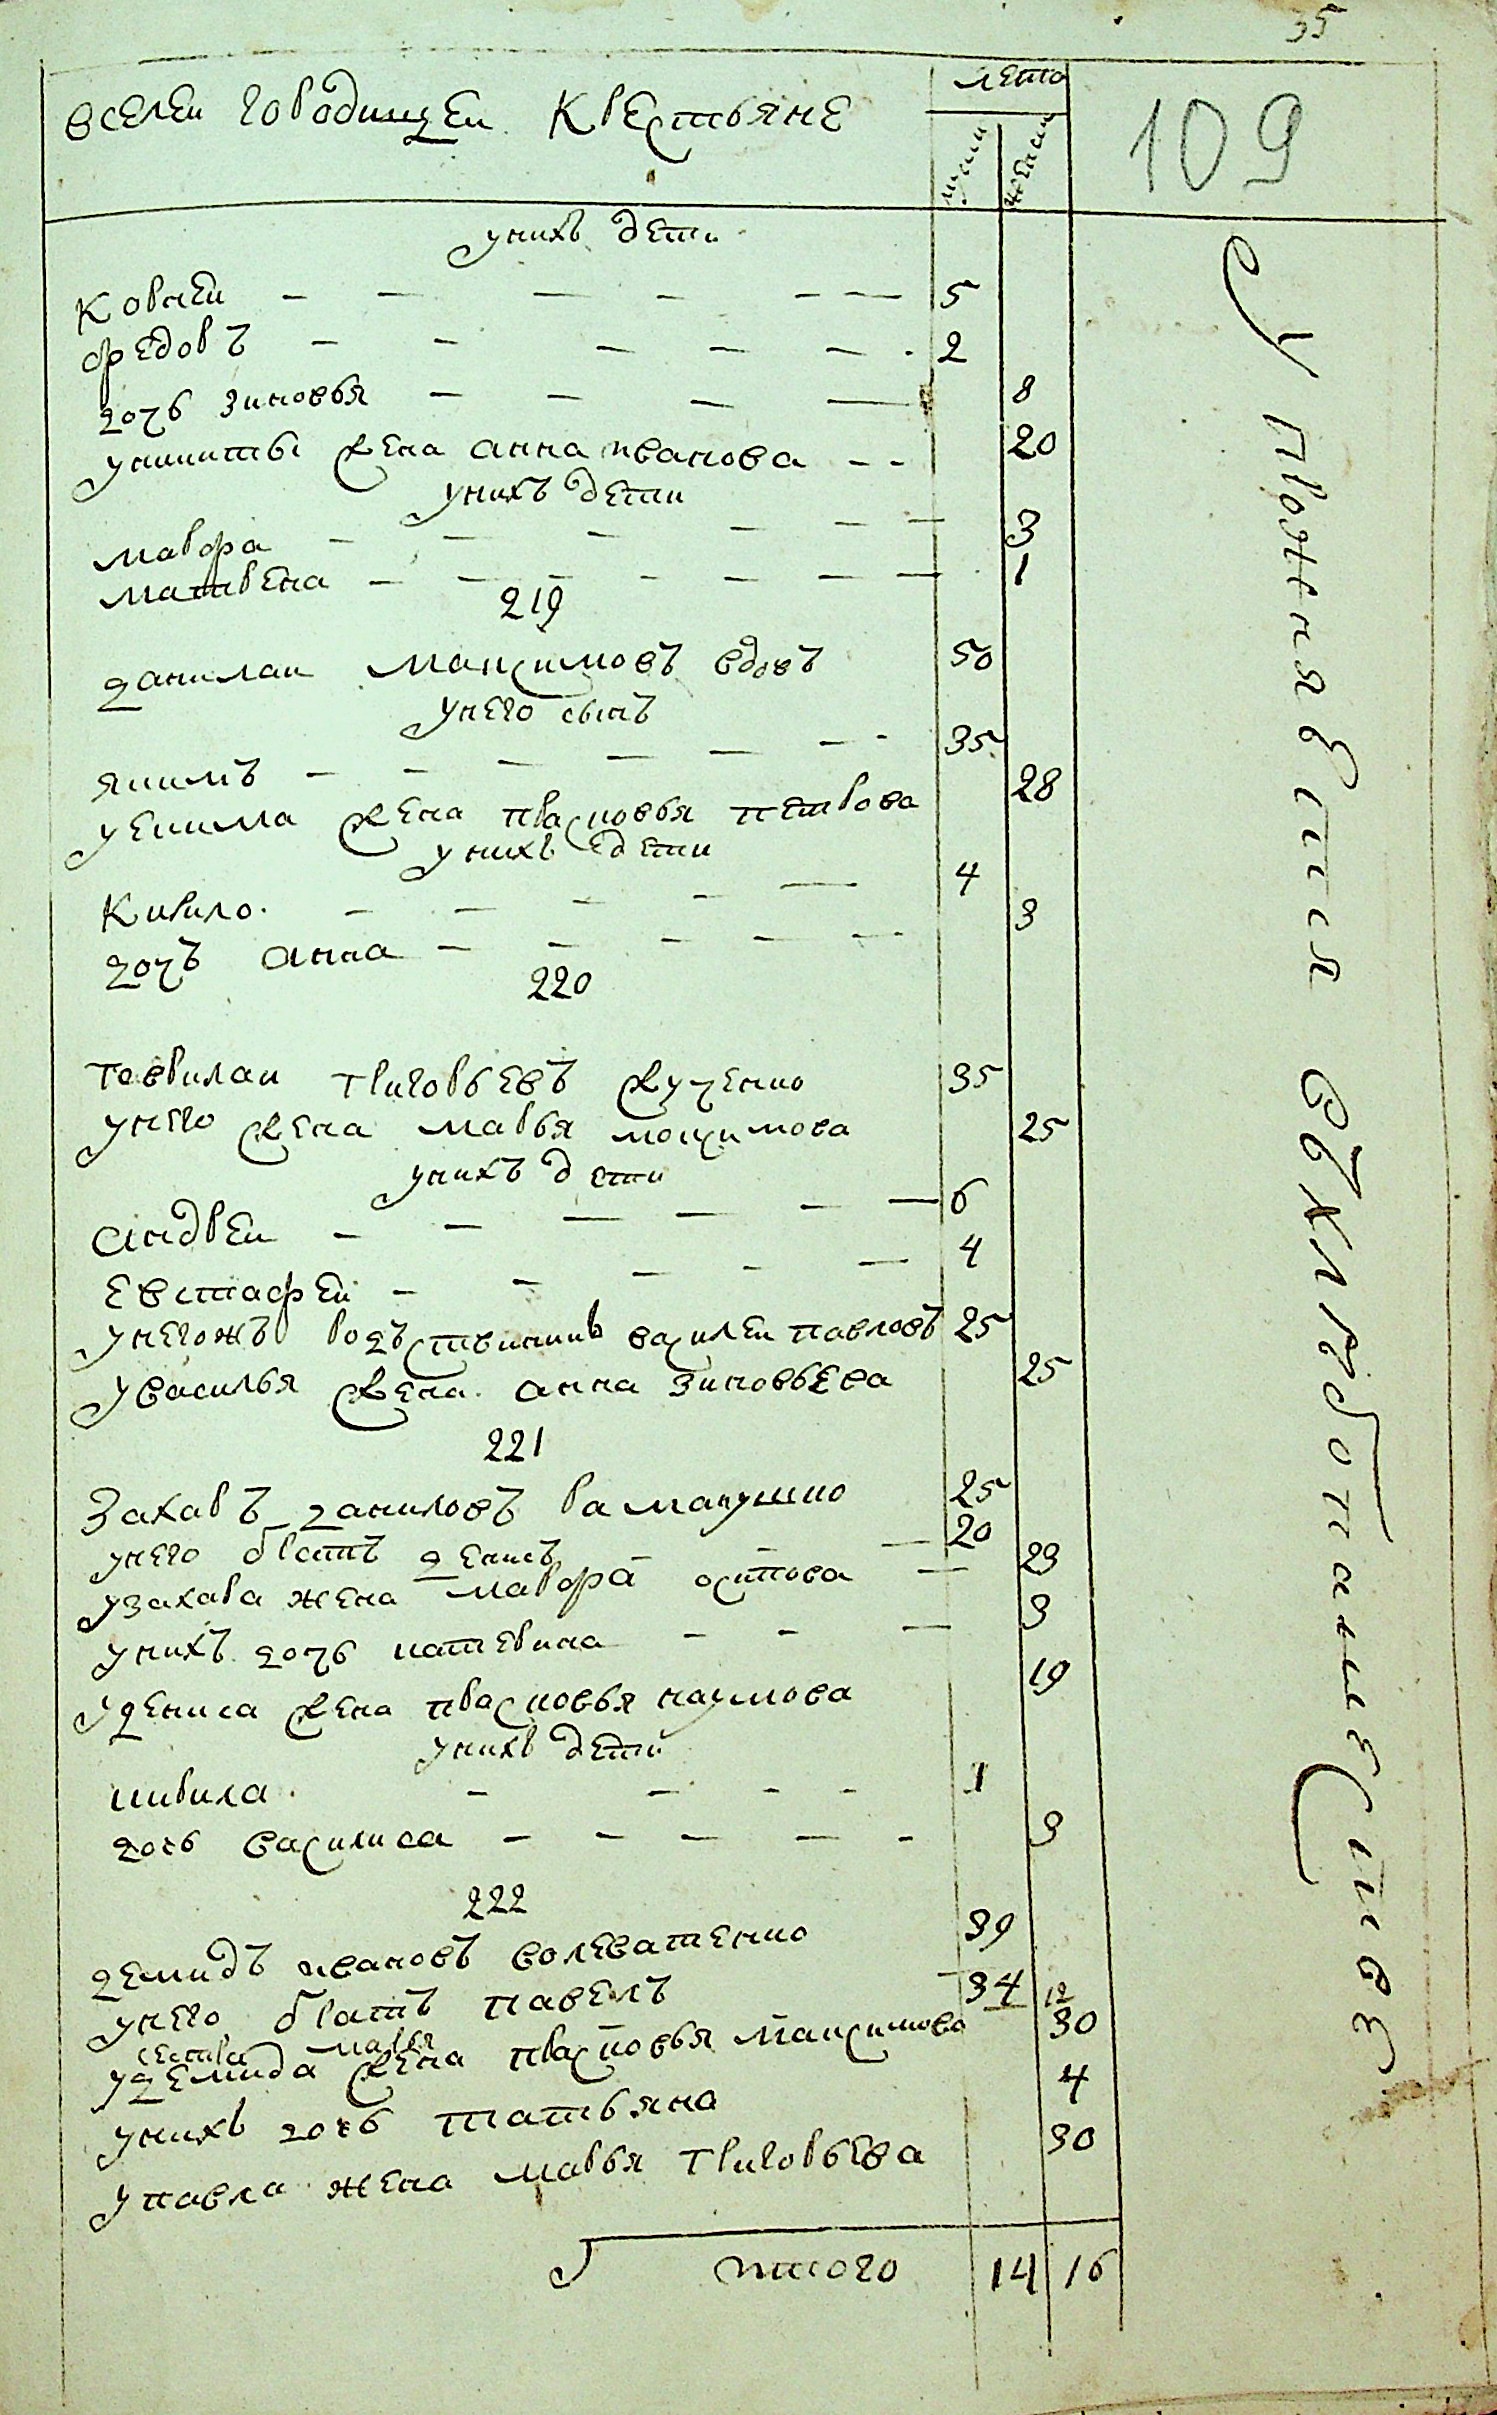 35
вселеи городищеи крестьяне
лета
муж
женск
109
унихъ дети
корнеи 5
федоръ 2
дочь зиновья 8
уникиты жена анна иванова 20
унихъ дети
мавра 3
матвена 1
219
данилаи максимовъ вдовъ 50
унего сынъ
якимъ 35
уекима жена парсковья петрова 28
унихъ дети
кирило 4
дочь анна 3
220
гаврилаи григорьевъ куценко 35
унего жена марья моксимова 25
унихъ дети
андреи 6
евстафеи 4
унегожъ родственикъ василеи павловъ 25
увасилья жена анна зиновьева 25
221
Захаръ даниловъ 25
унего братъ денисъ 20
узахара жена мавра осипова 23
унихъ дочь катерина 3
удениса жена прасковья наумова 19
унихъ дети
кирила 1
дочь василиса 3
222
демидъ ивановъ 39
унего братъ павелъ 34
сестра марья 12
удемида жена прасковья максимова 30
унихъ дочь татьяна 4
упавла жена марья григорьева 30
итого 14 16